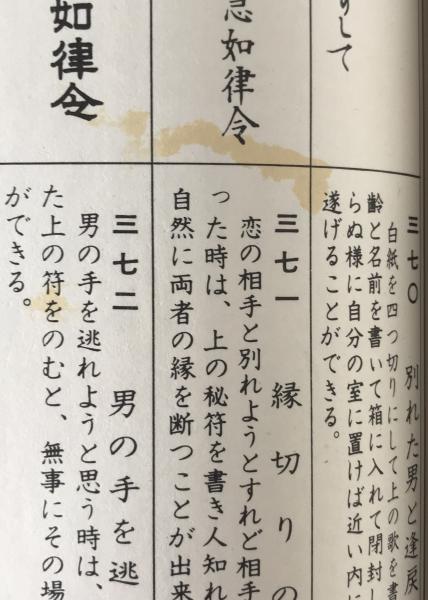 りして
急如律令
如律令
三七〇　別れた男と逢戻
白紙を四つ切りにして上の歌を書
齢と名前を書いて箱に入れて閉封し
らぬ様に自分の室に置けば近い内に
遂げることができる。
三七一　縁切りの
恋の相手と別れようとすれど相手
った時は、上の秘符を書き人知れ
自然に両者の縁を断つことが出来
三七二　男の手を逃
男の手を逃れようと思う時は、
た上の符をのむと、無事にその場
ができる。